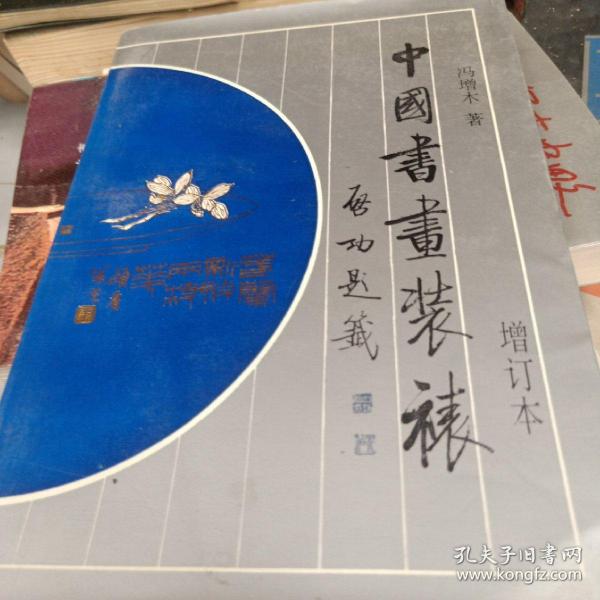 冯增木 著
中國書畫裝裱
启功题籤
增订本
孔夫子旧书网
www.kongfz.com